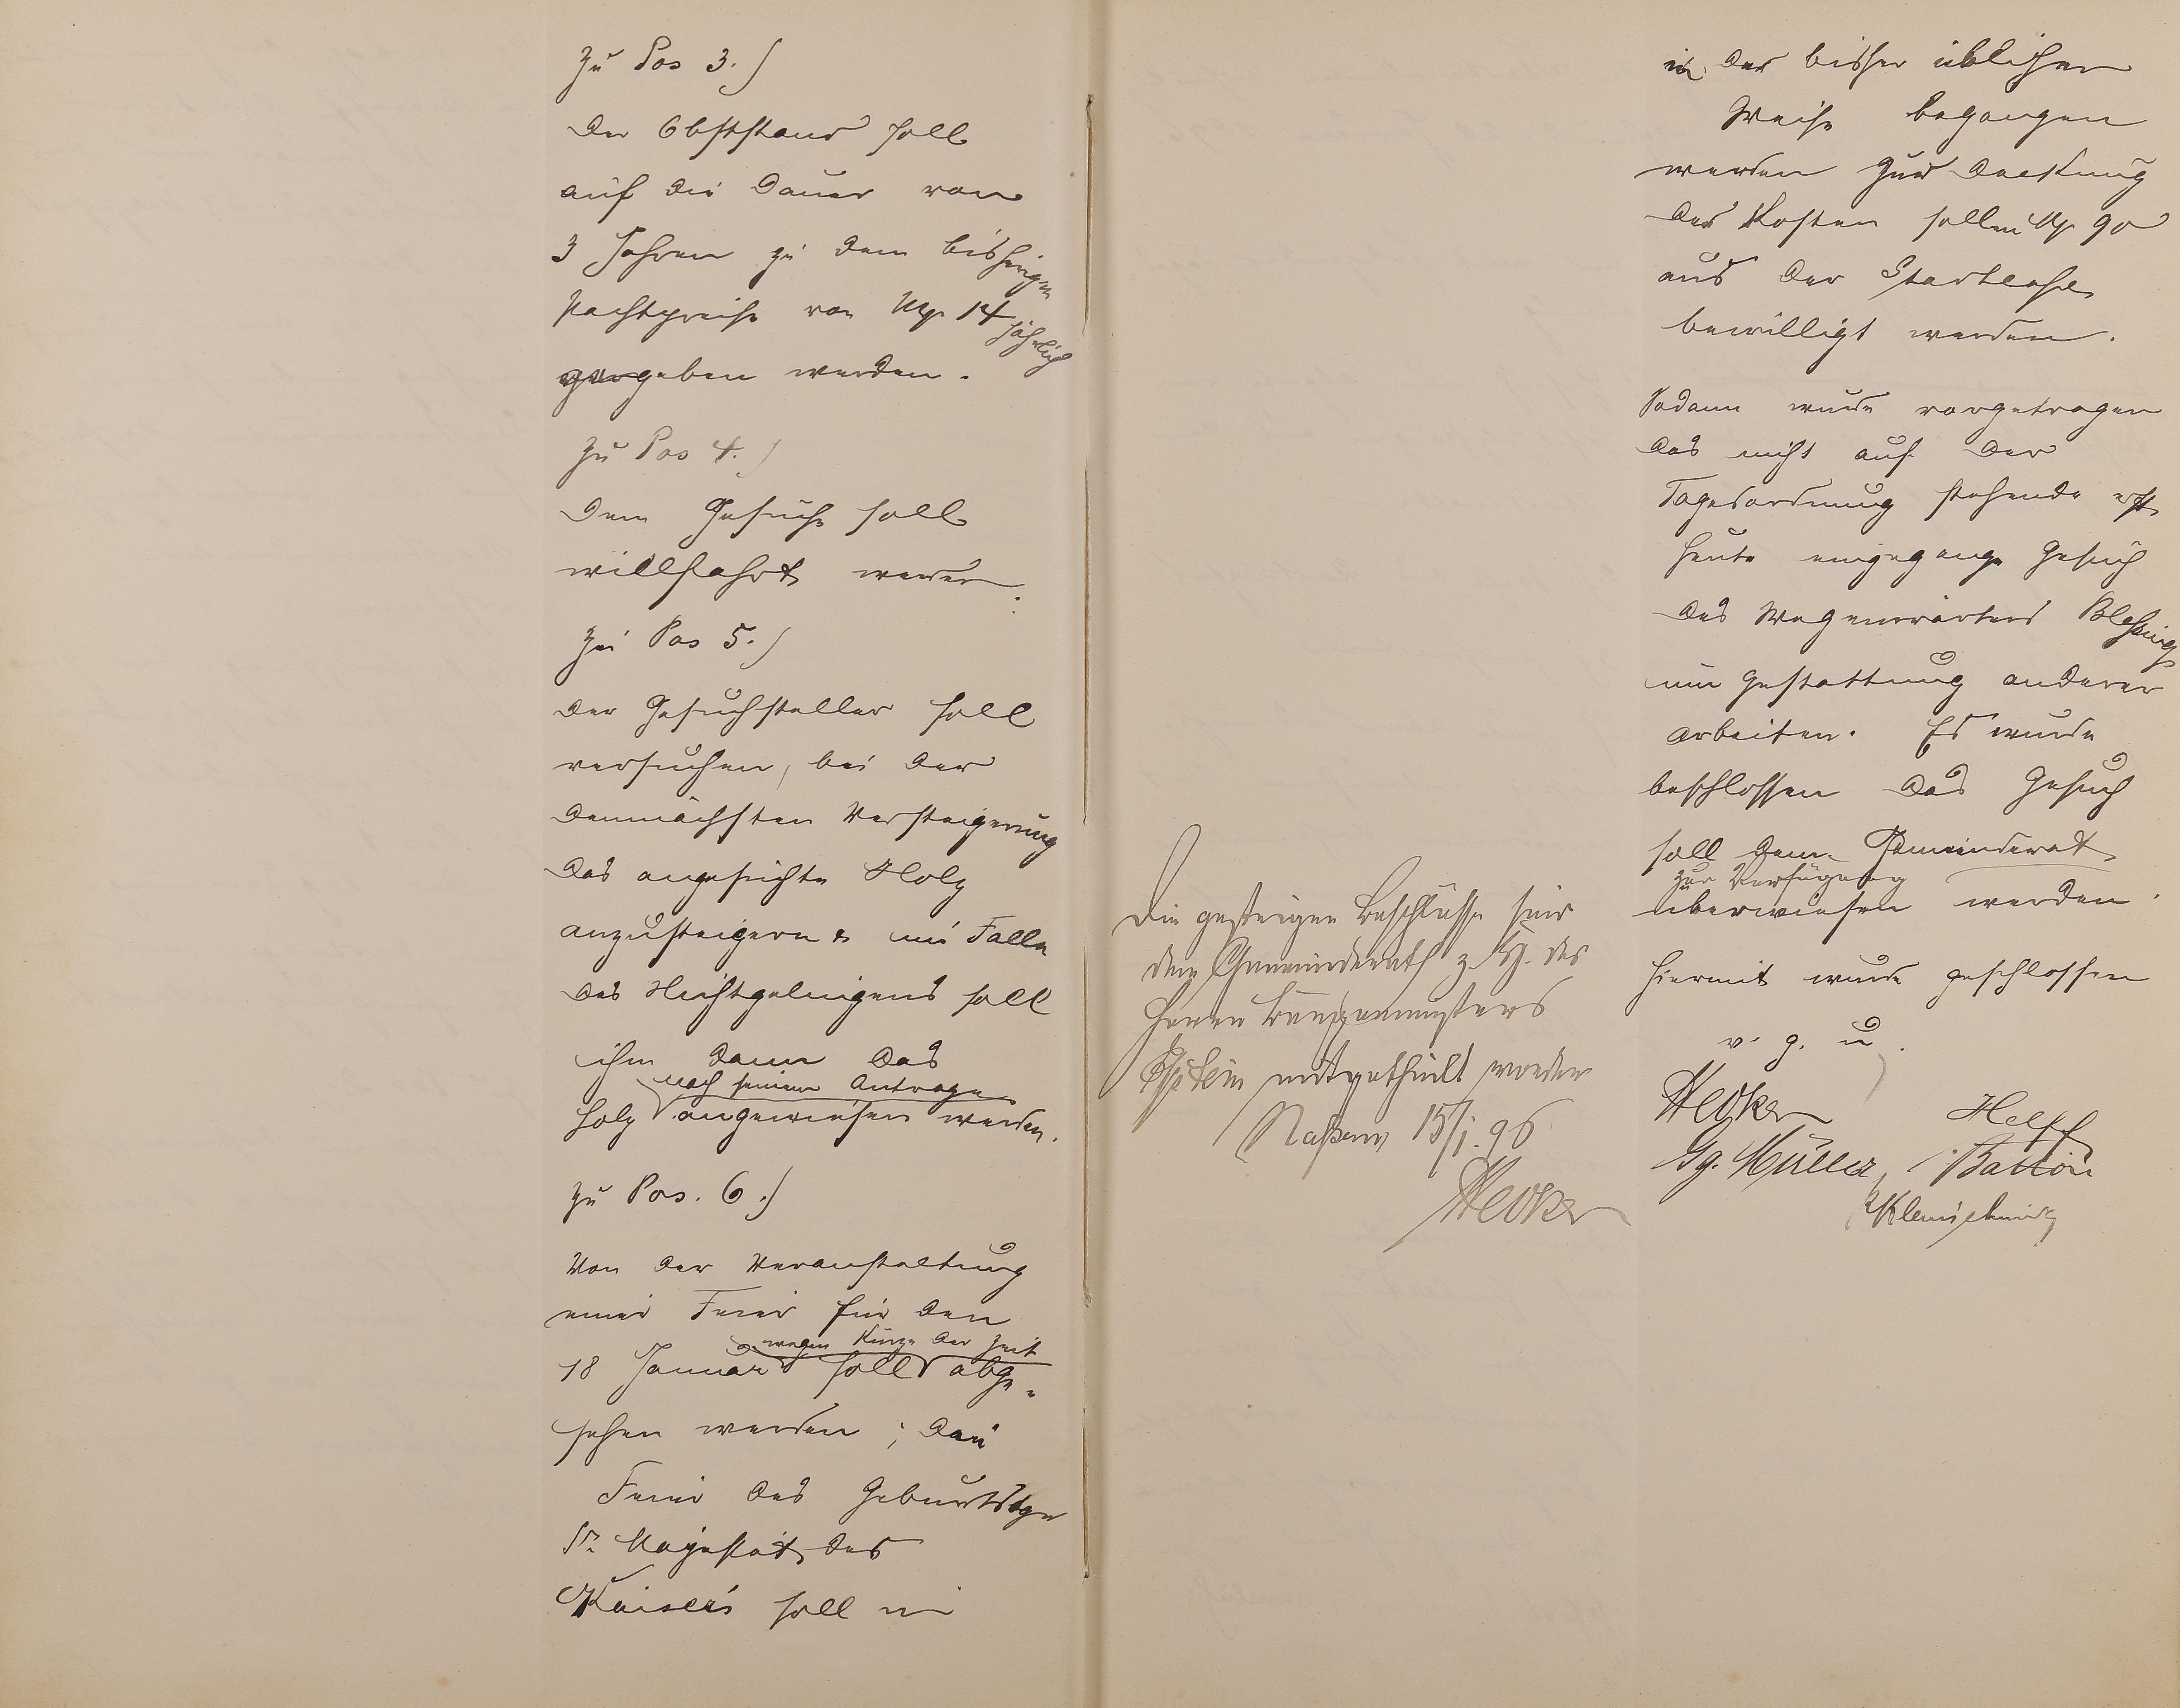 zu Pos 3.)
Der Obststand soll
auf die Dauer von
3 Jahren zu dem bisherigen
Pachtpreise von Mk 14 jährlich
vergeben werden.
zu Pos 4.)
Dem Gesuche soll
willfahrt werden.
zu Pos 5.)
Der Gesuchsteller soll
versuchen, bei der
demnächsten Versteigerung
das angesuchte Holz
anzusteigern & im Falle
des Nichtgelingens soll
ihm dann das
nach seinem Antrage
Holz angewiesen werden.
zu Pos. 6.)
Von der Veranstaltung
einer Feier für den
wegen Kürze der Zeit
18 Januar soll abge-
sehen werden; die
Feier des Geburtstges
Sr. Majestät des
Kaisers soll in
Die gestrigen Beschlüsse sind
dem Gemeinderath z. H. des
Herrn Bürgermeisters
mitgetheilt worden
Nassau, 15/1. 96
in der bisher üblichen
Weise begangen
werden zur Deckung
der Kosten sollen Mk 90
aus der Stadtcasse
bewilligt werden.
Sodann wurde vorgetragen
das nicht auf der
Tagesordnung stehende erst
heute eingegange Gesuch
des Wegewärters
um Gestattung anderer
Arbeiten. Es wurde
beschlossen das Gesuch
soll dem Gemeinderat
zur Verfügung
überwiesen werden.
Hiermit wurde geschlossen
v. g. u.
Gg. Müller,
Kleinschmidt